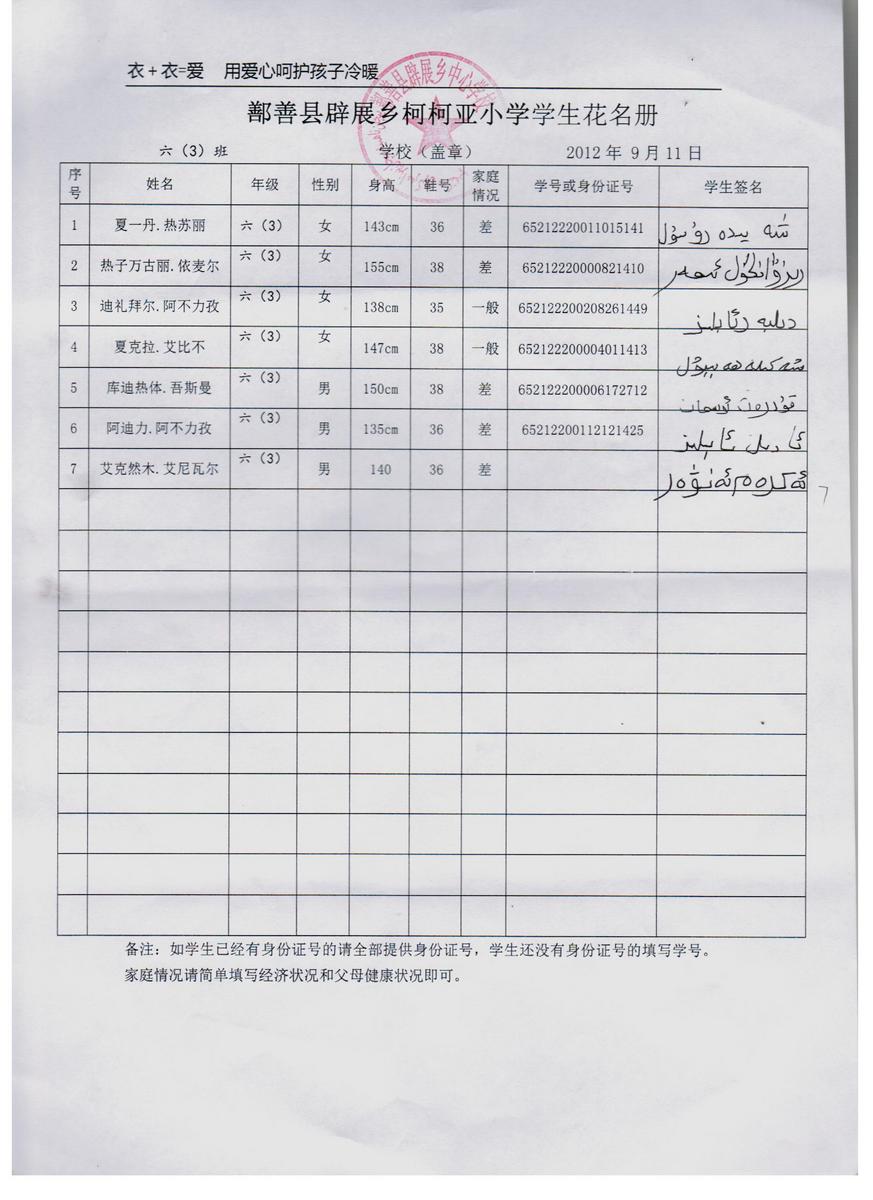 衣+衣=爱 用爱心呵护孩子冷暖
鄯善县辟展乡中心学校
鄯善县辟展乡柯柯亚小学学生花名册
六（3）班 学校（盖章） 2012 年 9 月 11 日
序号 姓名 年级 性别 身高 鞋号 家庭情况 学号或身份证号 学生签名
1 夏一丹.热苏丽 六（3） 女 143cm 36 差 65212220011015141
2 热子万古丽.依麦尔 六（3） 女 155cm 38 差 65212220000821410
3 迪礼拜尔.阿不力孜 六（3） 女 138cm 35 一般 652122200208261449 دىلبە رئابلىز
4 夏克拉.艾比不 六（3） 女 147cm 38 一般 652122200004011413
5 库迪热体.吾斯曼 六（3） 男 150cm 38 差 652122200006172712 قۇدرەت ئوسمان
6 阿迪力.阿不力孜 六（3） 男 135cm 36 差 65212200112121425 ئادىل ئابلىز
7 艾克然木.艾尼瓦尔 六（3） 男 140 36 差 ئەكرەم ئەنۋەر
7
备注：如学生已经有身份证号的请全部提供身份证号，学生还没有身份证号的填写学号。
家庭情况请简单填写经济状况和父母健康状况即可。